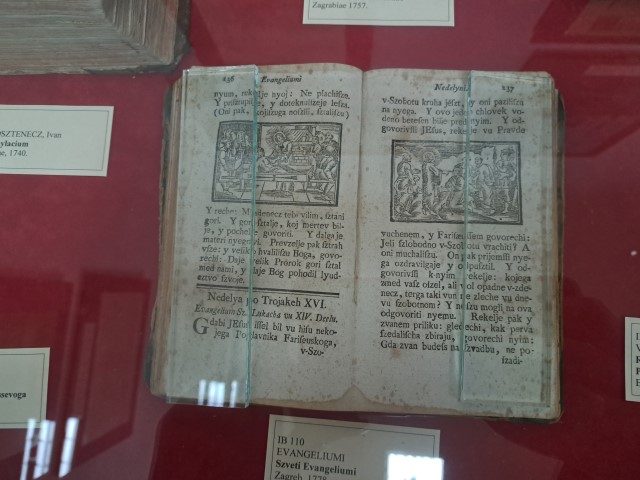 Zagrabiae 1757.
OSZTENECZ, Ivan
ylacium
e, 1740.
236 Evangeliumi
nyum, rekelje nyoj: Ne plachisze.
Y prisztupivsi, y doteknulzeje lesza.
(Oni pak, koji szuga noszili, sztalisze)
Y reche: Mladenecz tebi velim, sztani
gori. Y gori sztalje, koj mertev bil-
je, y pochelje govoriti. Y dalga je
materi nyegovoj. Prevzelje pak sztrah
vsze: y veliko hvalilisu Boga, govo-
rechi: Daje velik Prorok gori sztal
med nami, y daje Bog pohodil lyud-
sztvo szvoje.
Nedelya po Trojakeh XVI.
Evangelium Sz. Lukacha vu XIV. Delu.
Gdabi JEsus issel bil vu hisu neko-
jega Poglavnika Farisenskoga,
v-Szo-
Nedelyni. 237
v-Szobotu kruha jeszt, y oni pazilisu
na nyega. Y ovo jeden chlovek vo-
deno betesen bisse pred nyim. Y od-
govorivsi JEsus, rekelje vu Pravde
vuchenem, y Farisensem govorechi:
Jeli szlobodno v-Szobotu vrachiti? A
oni muchalisu. On pak prijemsi nye-
ga ozdravilgaje y odpusztil. Y od-
govorivsi k-nyim rekelje: kojega
med vasz oszel, ali vol opadne v-zde-
necz, terga taki vun ne zleche vu dne-
vu szobotnom? Y neszu mogli na ova
odgovoriti nyemu. Rekelje pak y
zvanem priliku: gledechi, kak perva
szedalischa zbiraju, govorechi nyim;
Gda zvan budess na szvadbu, ne po-
sztadi-
aevoga
IB 110
EVANGELIUMI
Szveti Evangeliumi
Zagreb, 1778.